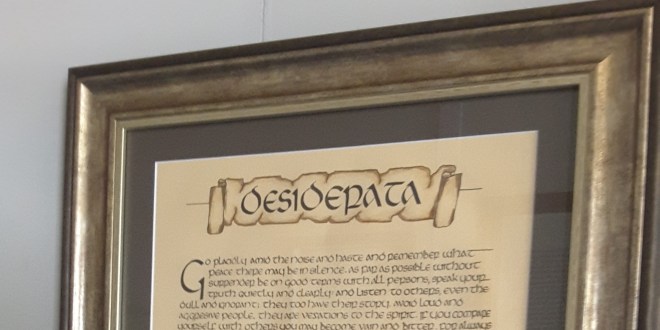 DESIDERATA
Go placidly amid the noise and haste and remember what
peace there may be in silence. As far as possible without
surrender be on good terms with all persons, speak your
truth quietly and clearly: and listen to others, even the
dull and ignorant; they too have their story. Avoid loud and
aggressive people, they are vexations to the spirit. If you compare
yourself with others you may become vain and bitter, for always